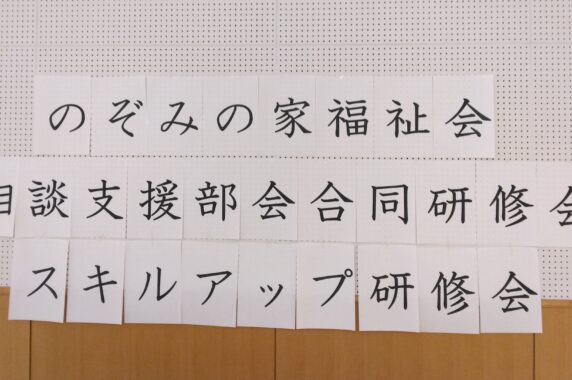 のぞみの家福祉会
相談支援部会合同研修会
スキルアップ研修会